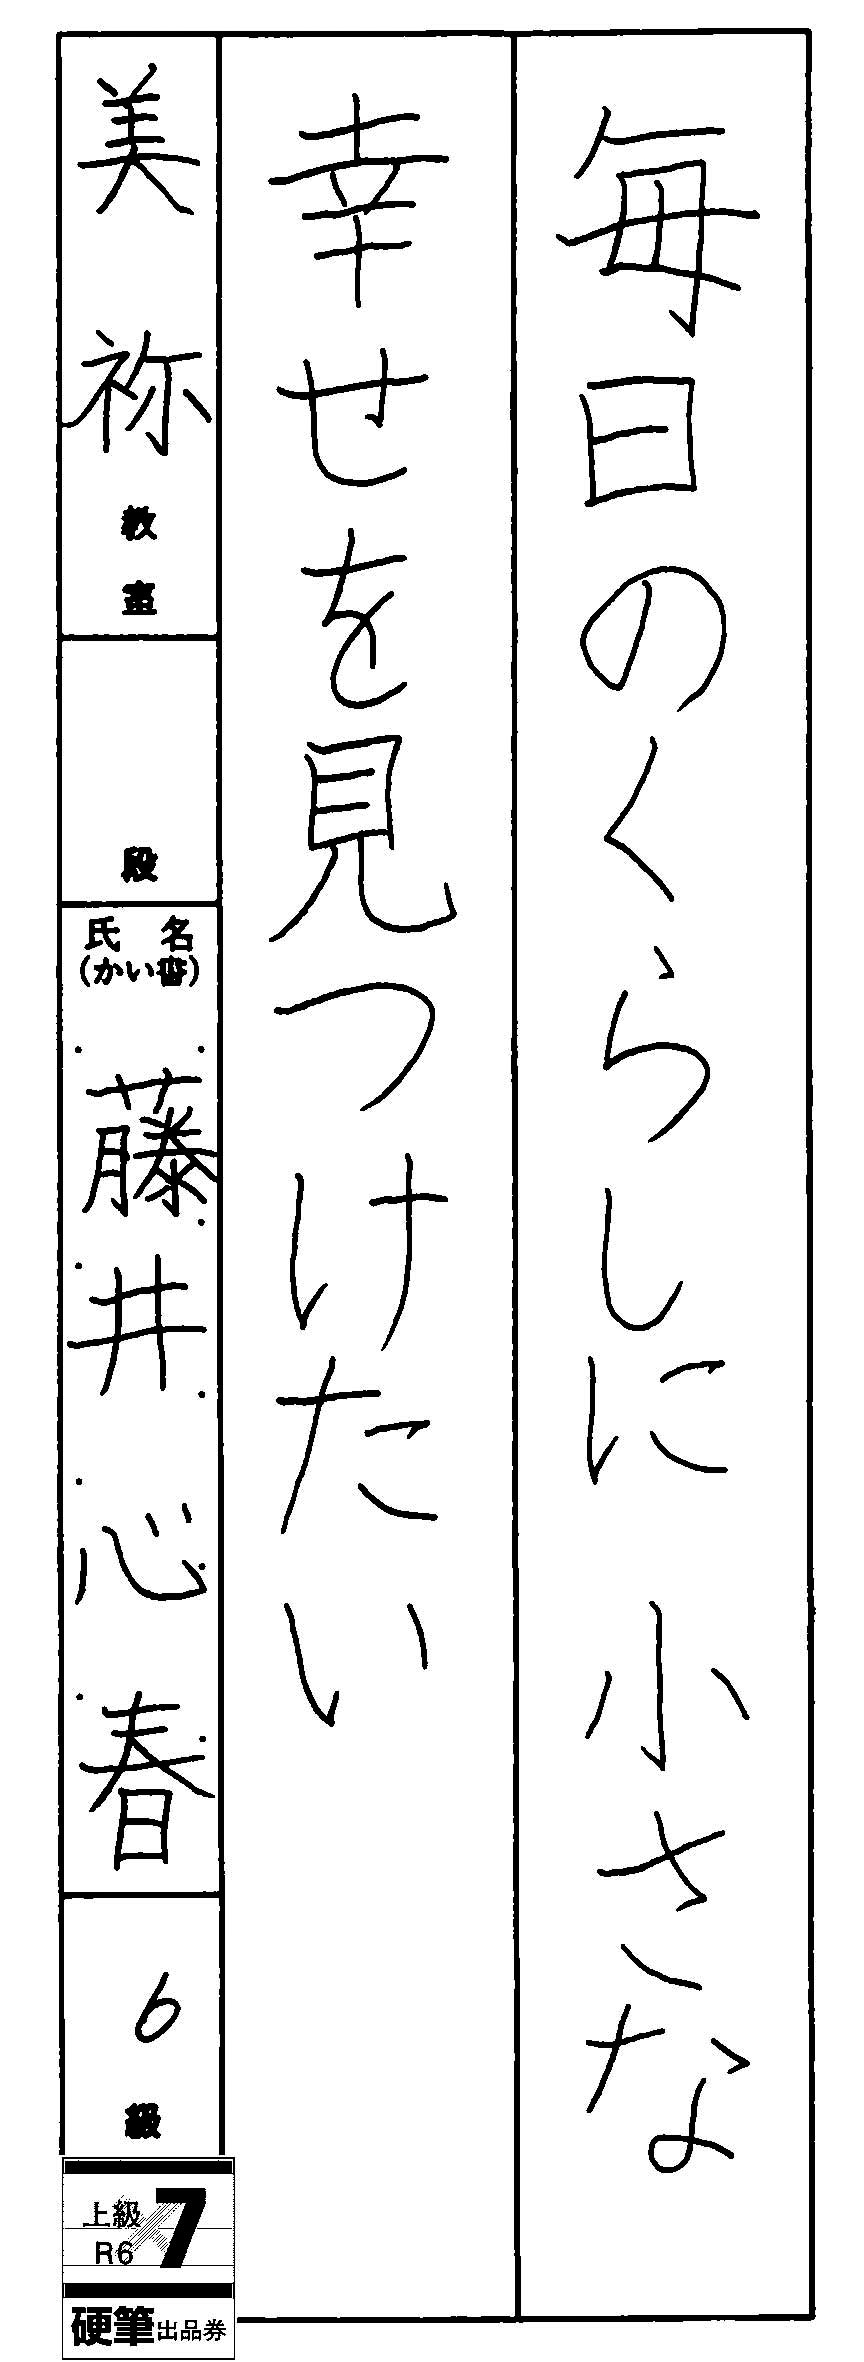 毎日のくらしに 小さな
幸せを見つけたい
美祢教室
段
氏名
(かい書)
藤井心春
6級
上級
R6
7
硬筆出品券